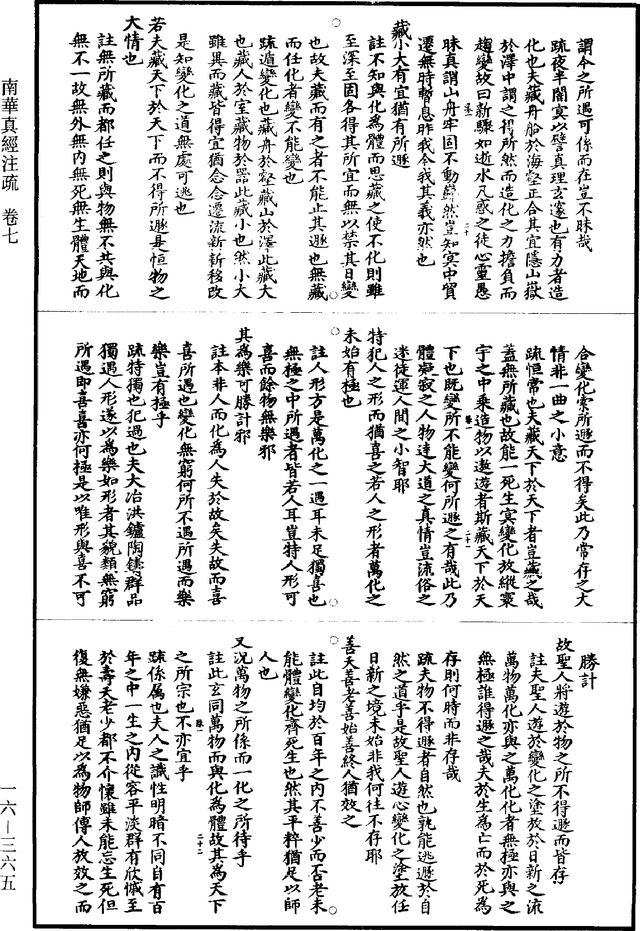 謂今之所遇可係而在豈不昧哉
疏夜半闇冥以譬真理玄邃也有力者造
化也夫藏舟船於海壑正合其宜隱山嶽
於澤中謂之得所然而造化之力擔負而
趨變故日新驟如逝水凡惑之徒心靈愚
昧真謂山舟牢固不動歸然豈知冥中貿
遷無時暫息昨我今我其義亦然也
藏小大有宜猶有所遯
註不知與化為體而思藏之使不化則雖
至深至固各得其所宜而無以禁其日變
也故夫藏而有之者不能止其遯也無藏
而任化者變不能變也
疏遁變化也藏舟於壑藏山於澤此藏大
也藏人於室藏物於器此藏小也然小大
雖異而藏皆得宜猶念念遷流新新移改
是知變化之道無處可逃也
若夫藏天下於天下而不得所遯是恒物之
大情也
註無所藏而都任之則與物無不共與化
無不一故無外無內無死無生體天地而
合變化索所遯而不得矣此乃常存之大
情非一曲之小意
疏恒常也夫藏天下於天下者豈藏之哉
蓋無所藏也故能一死生冥變化放縱寰
宇之中乘造物以遨遊者斯藏天下於天
下也既變所不能變何所遯之有哉此乃
體凝寂之人物達大道之真情豈流俗之
迷徒運人間之小智耶
特犯人之形而猶喜之若人之形者萬化之
未始有極也
註人形方是萬化之一遇耳未足獨喜也
無極之中所遇者皆若人耳豈特人形可
喜而餘物無樂邪
其為樂可勝計邪
註本非人而化為人失於故矣失故而喜
喜所遇也變化無窮何所不遇所遇而樂
樂豈有極乎
疏特獨也犯遇也夫大冶洪鑪陶鑄群品
獨遇人形遂以為樂如形者其貌類無窮
所遇即喜喜亦何極是以唯形與喜不可
勝計
故聖人將遊於物之所不得遯而皆存
註夫聖人遊於變化之塗放於日新之流
萬物萬化亦與之萬化化者無極亦與之
無極誰得遯之哉夫於生為亡而於死為
存則何時而非存哉
疏夫物不得遯者自然也孰能逃遯於自
然之道乎是故聖人遊心變化之塗放任
日新之境未始非我何往不存耶
善夭善老善始善終人猶效之
註此自均於百年之內不善少而否老未
能體變化齊死生也然其平粹猶足以師
人也
又況萬物之所係而一化之所待乎
註此玄同萬物而與化為體故其為天下
之所宗也不亦宜乎
疏係屬也夫人之識性明暗不同自有百
年之中一生之內從容平淡群有欣慼至
於壽夭老少都不介懷雖未能忘生死但
復無嫌惡猶足以為物師傅人放效之而
南華真經注疏 卷七
一六—三六五